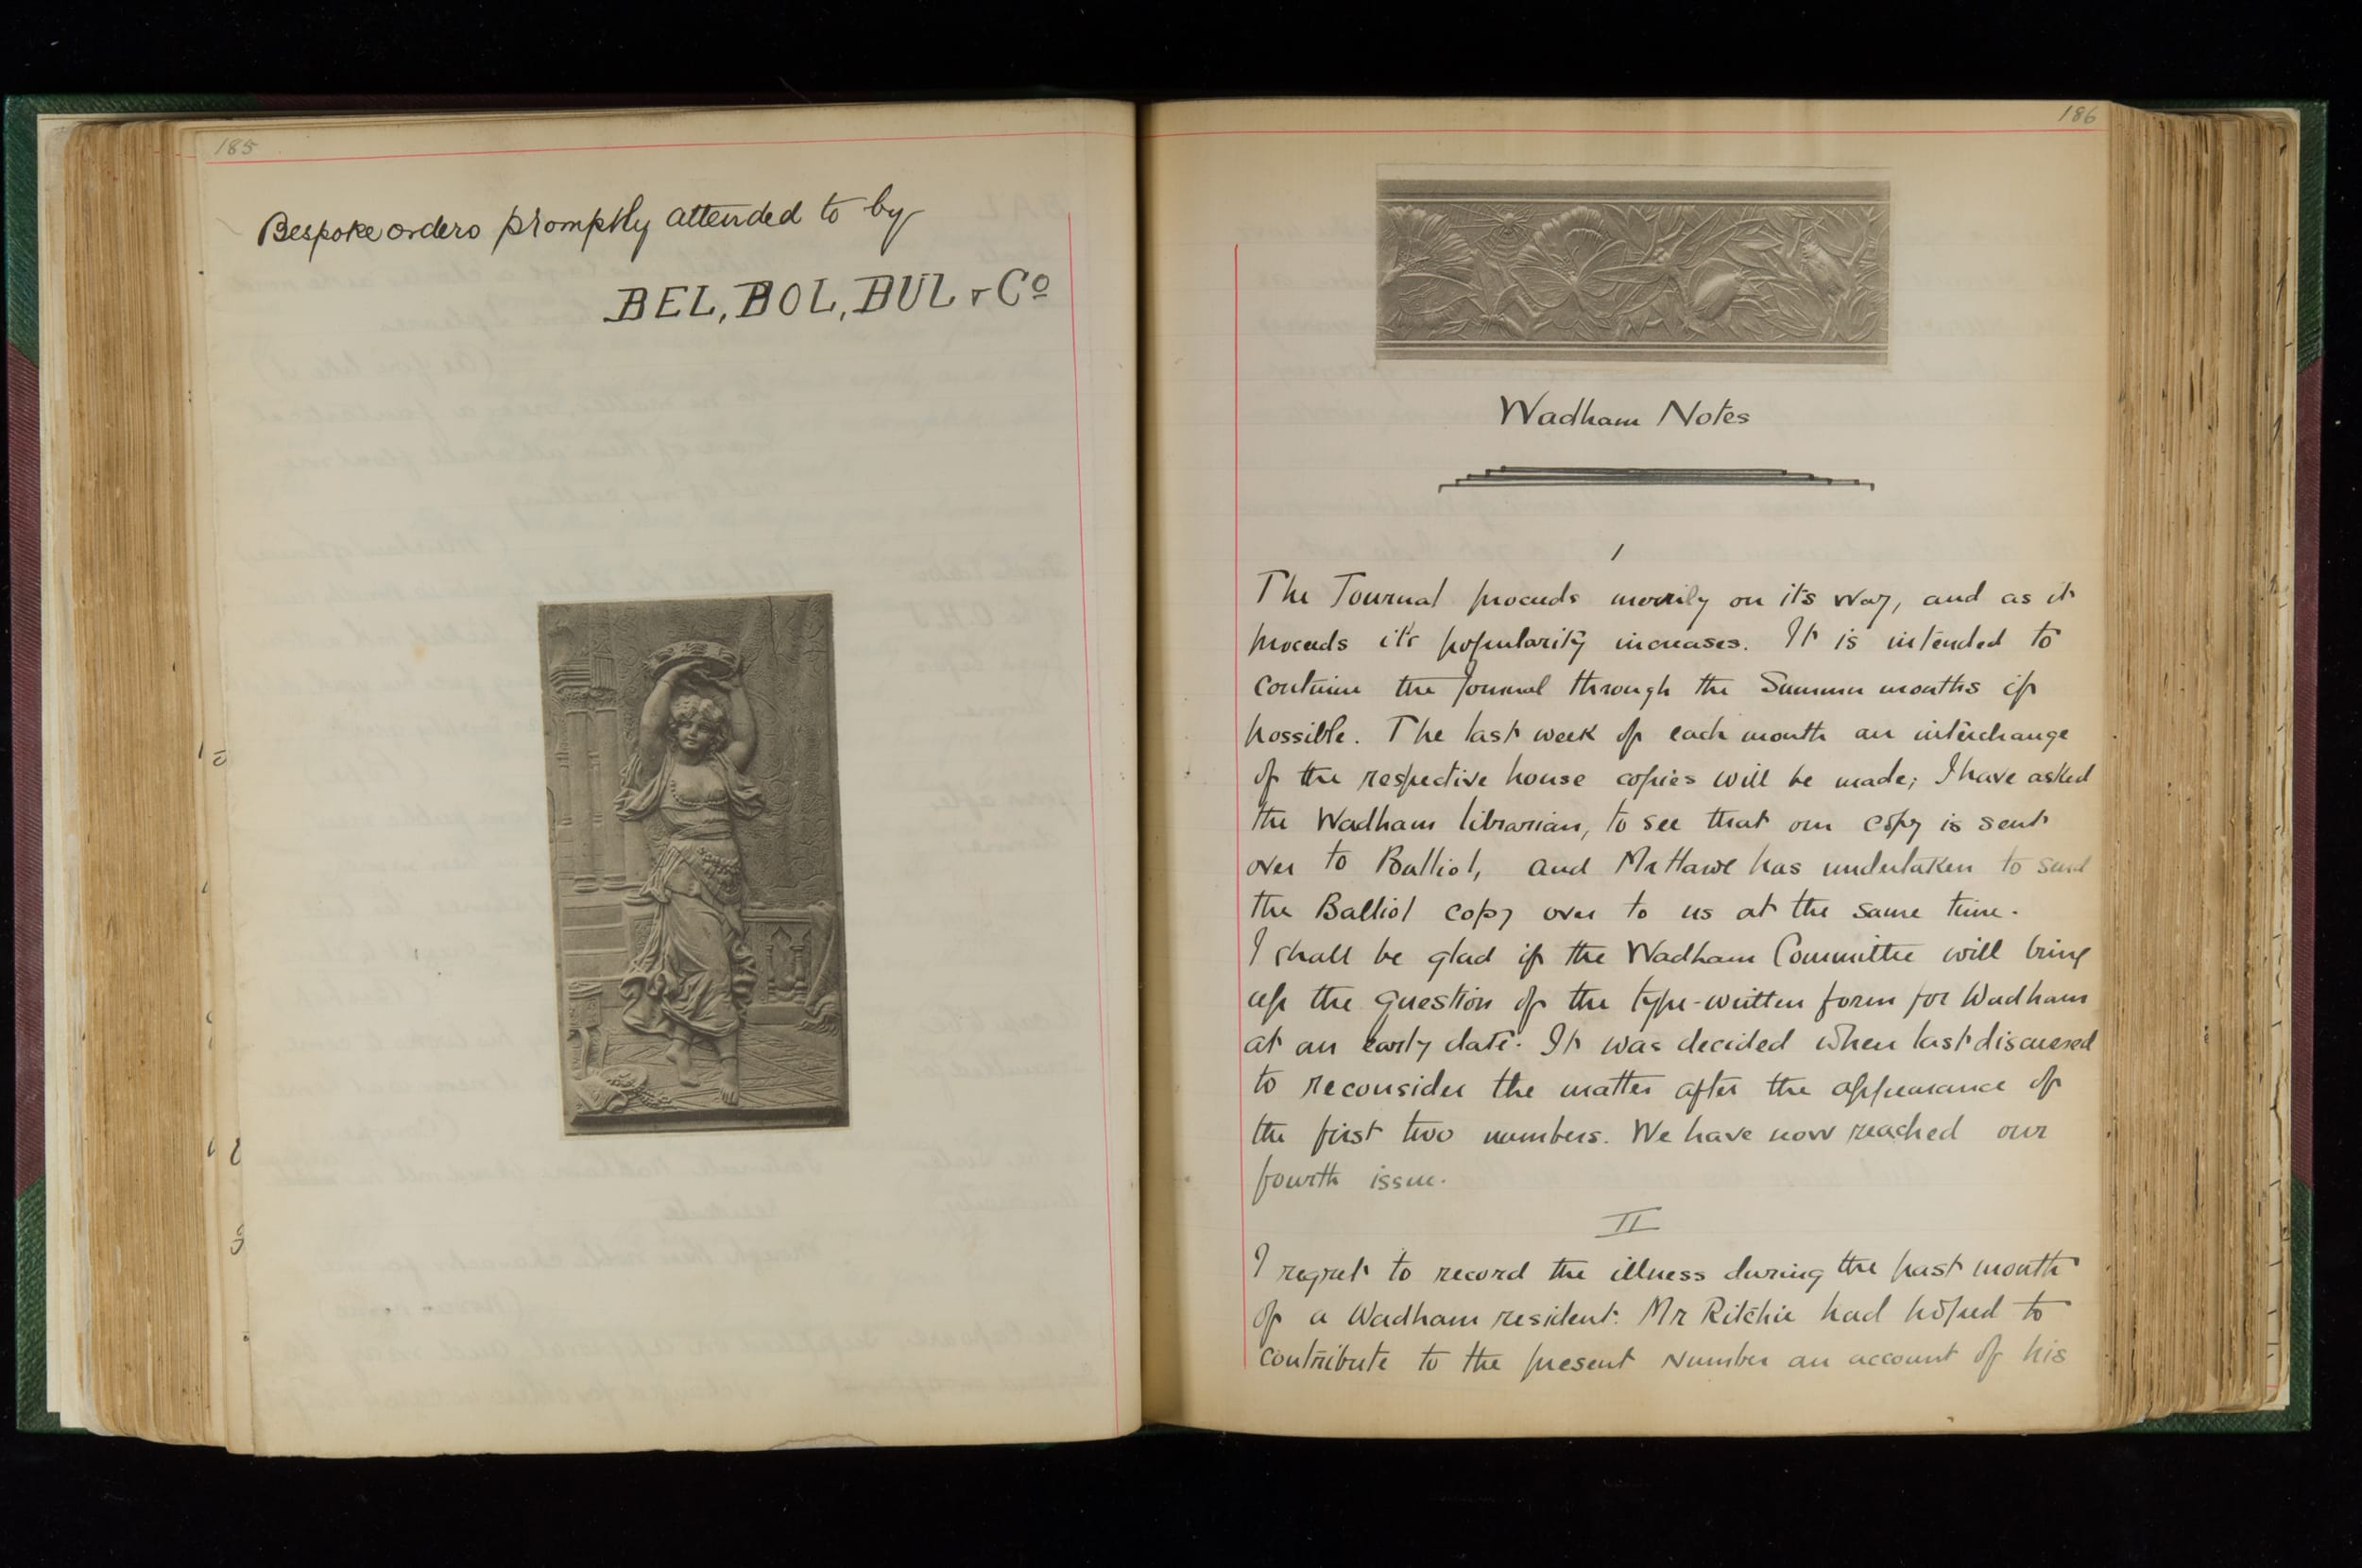 185
Bespoke orders promptly attended to by
BEL, BOL, BUL & Co
186
Wadham Notes
I
The Journal proceeds merrily on its way, and as it
proceeds it's popularity increases. It is intended to
continue the Journal through the Summer months if
possible. The last week of each month an interchange
of the respective house copies will be made; I have asked
the Wadham librarian, to see that our copy is sent
over to Balliol, and Mr Hawe has undertaken to send
the Balliol copy over to us at the same time.
I shall be glad if the Wadham Committee will bring
up the question of the type-written form for Wadham
at an early date. It was decided when last discussed
to reconsider the matter after the appearance of
the first two numbers. We have now reached our
fourth issue.
II
I regret to record the illness during the past month
of a Wadham resident. Mr Ritchie had hoped to
contribute to the present Number an account of his